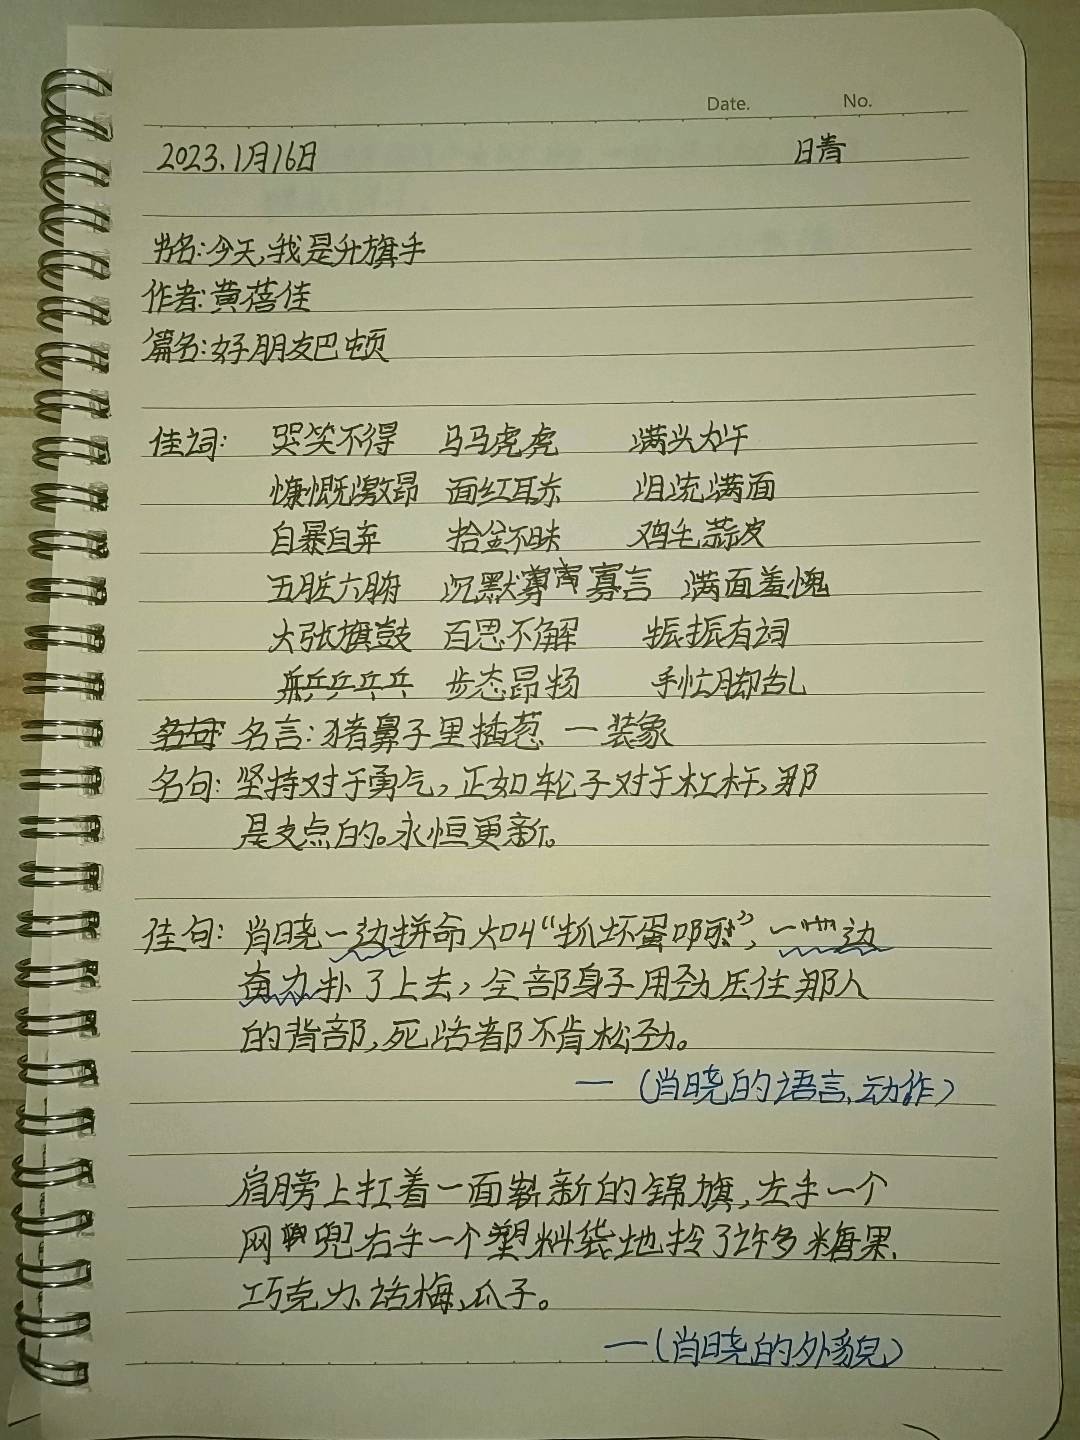 Date. No.
2023.1月16日 晴
书名:今天,我是升旗手
作者:黄蓓佳
篇名:好朋友巴顿
佳词: 哭笑不得 马马虎虎 满头大汗
慷慨激昂 面红耳赤 泪流满面
自暴自弃 拾金不昧 鸡毛蒜皮
五脏六腑 沉默寡言 满面羞愧
大张旗鼓 百思不解 振振有词
乒乒乓乓 步态昂扬 手忙脚乱
名句: 名言:猪鼻子里插葱 一装象
名句:坚持对于勇气,正如轮子对于杠杆,那
是支点的。永恒更新。
佳句: 肖晓一边拼命大叫“抓坏蛋呀”,一边
奋力扑了上去,全部身子用劲压住那人
的背部,死活都不肯松劲。
—(肖晓的语言、动作)
肩膀上扛着一面崭新的锦旗,左手一个
网兜右手一个塑料袋地拎了许多糖果、
巧克力、话梅、瓜子。
—(肖晓的外貌)